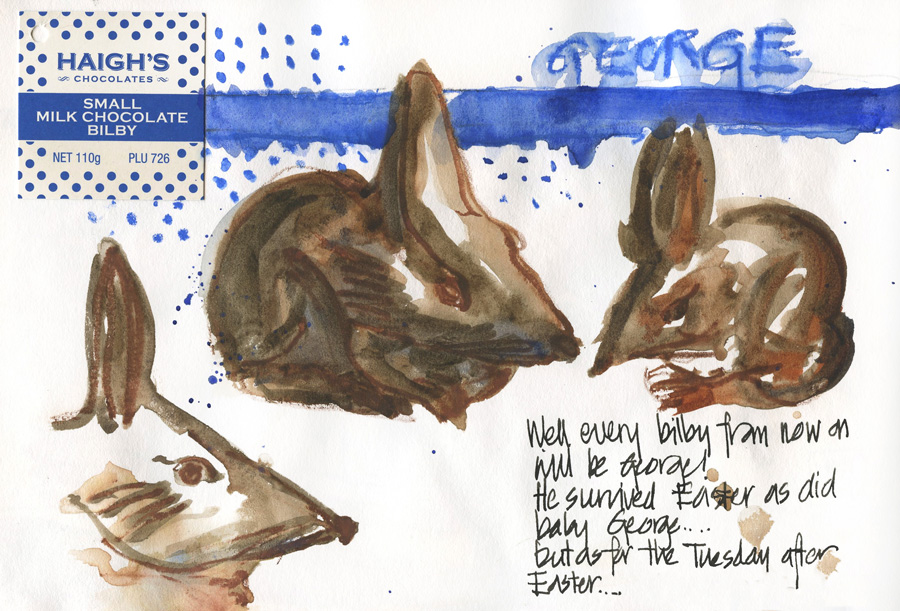 HAIGH'S
CHOCOLATES
SMALL
MILK CHOCOLATE
BILBY
NET 110g PLU 726
GEORGE
Well every bilby from now on
will be George!
He survived Easter as did
baby George....
but as for the Tuesday after
Easter....